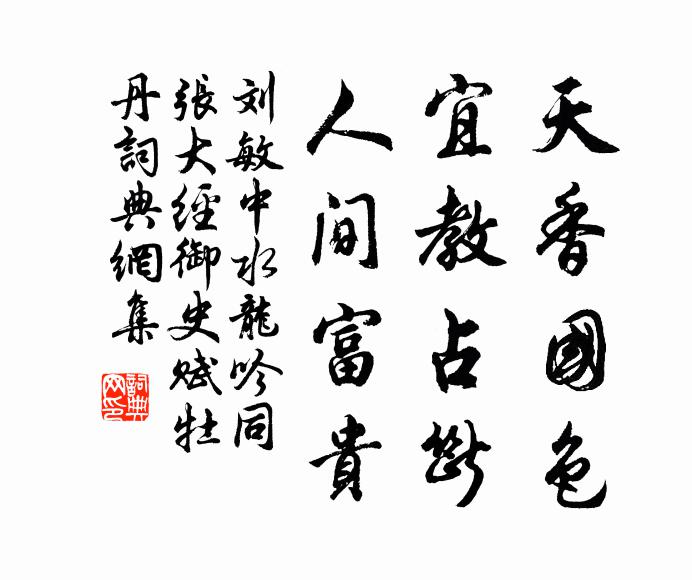 天香國色
宜教占斷
人間富貴
刘敏中水龍吟同
張大經御史賦牡
丹詞典網集
詞典
网印